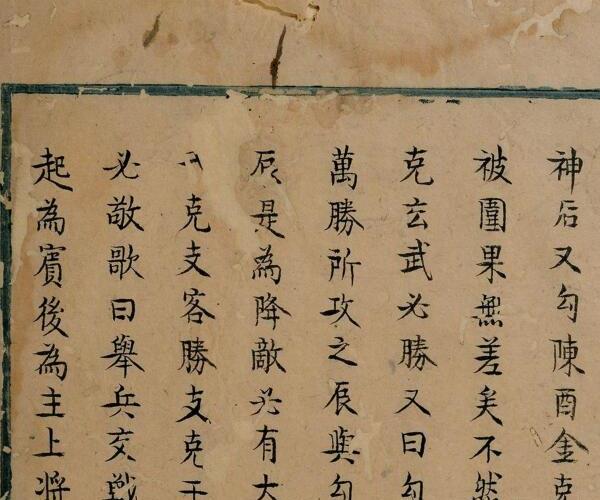 神后又勾陳酉金克
被圍果無差矣不然
克玄武必勝又曰勾
萬勝所攻之辰與勾
辰是為降敵必有大
克支客勝支克干
必敵歌曰舉兵交戰
起為賓後為主上將